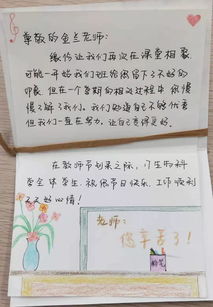 尊敬的金兰老师：
缘份让我们再次在课堂相聚，
可能一开始我们班给您留下了不好的
印象，但在一个学期的相处过程中，您慢
慢了解了我们。我们知道自己不够优秀
但我们一直在努力，让自己变得更好。
在教师节到来之际，
全体学生，祝您节日快乐，工作顺利
天天好心情！
老师：
您辛苦了！